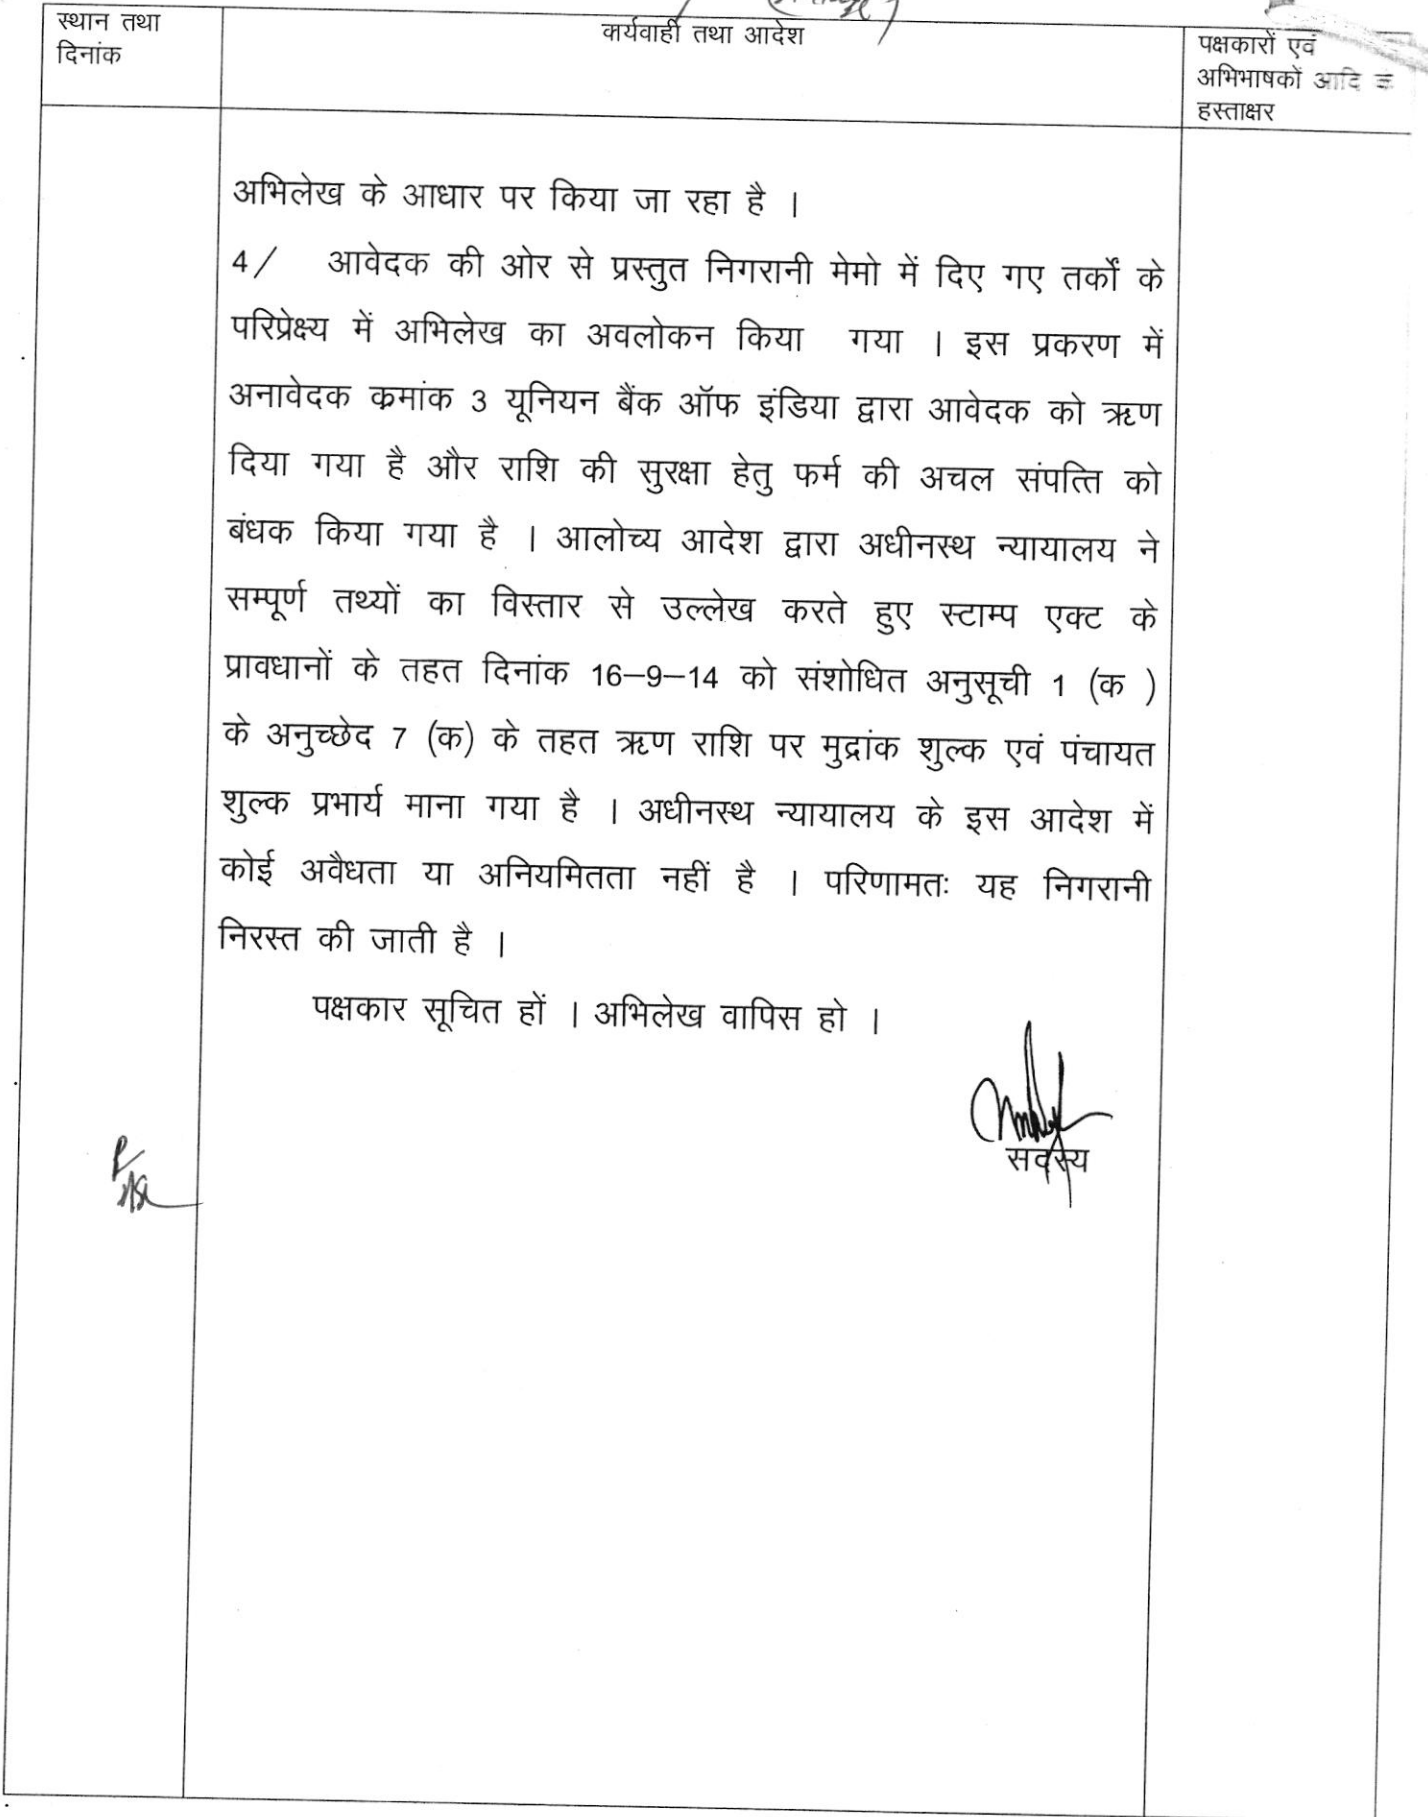 स्थान तथा
दिनांक
कार्यवाही तथा आदेश
पक्षकारों एवं
अभिभाषकों आदि के
हस्ताक्षर
अभिलेख के आधार पर किया जा रहा है ।
4/ आवेदक की ओर से प्रस्तुत निगरानी मेमो में दिए गए तर्कों के
परिप्रेक्ष्य में अभिलेख का अवलोकन किया गया । इस प्रकरण में
अनावेदक क्रमांक 3 यूनियन बैंक ऑफ इंडिया द्वारा आवेदक को ऋण
दिया गया है और राशि की सुरक्षा हेतु फर्म की अचल संपत्ति को
बंधक किया गया है । आलोच्य आदेश द्वारा अधीनस्थ न्यायालय ने
सम्पूर्ण तथ्यों का विस्तार से उल्लेख करते हुए स्टाम्प एक्ट के
प्रावधानों के तहत दिनांक 16–9–14 को संशोधित अनुसूची 1 (क )
के अनुच्छेद 7 (क) के तहत ऋण राशि पर मुद्रांक शुल्क एवं पंचायत
शुल्क प्रभार्य माना गया है । अधीनस्थ न्यायालय के इस आदेश में
कोई अवैधता या अनियमितता नहीं है । परिणामतः यह निगरानी
निरस्त की जाती है ।
पक्षकार सूचित हों । अभिलेख वापिस हो ।
सदस्य